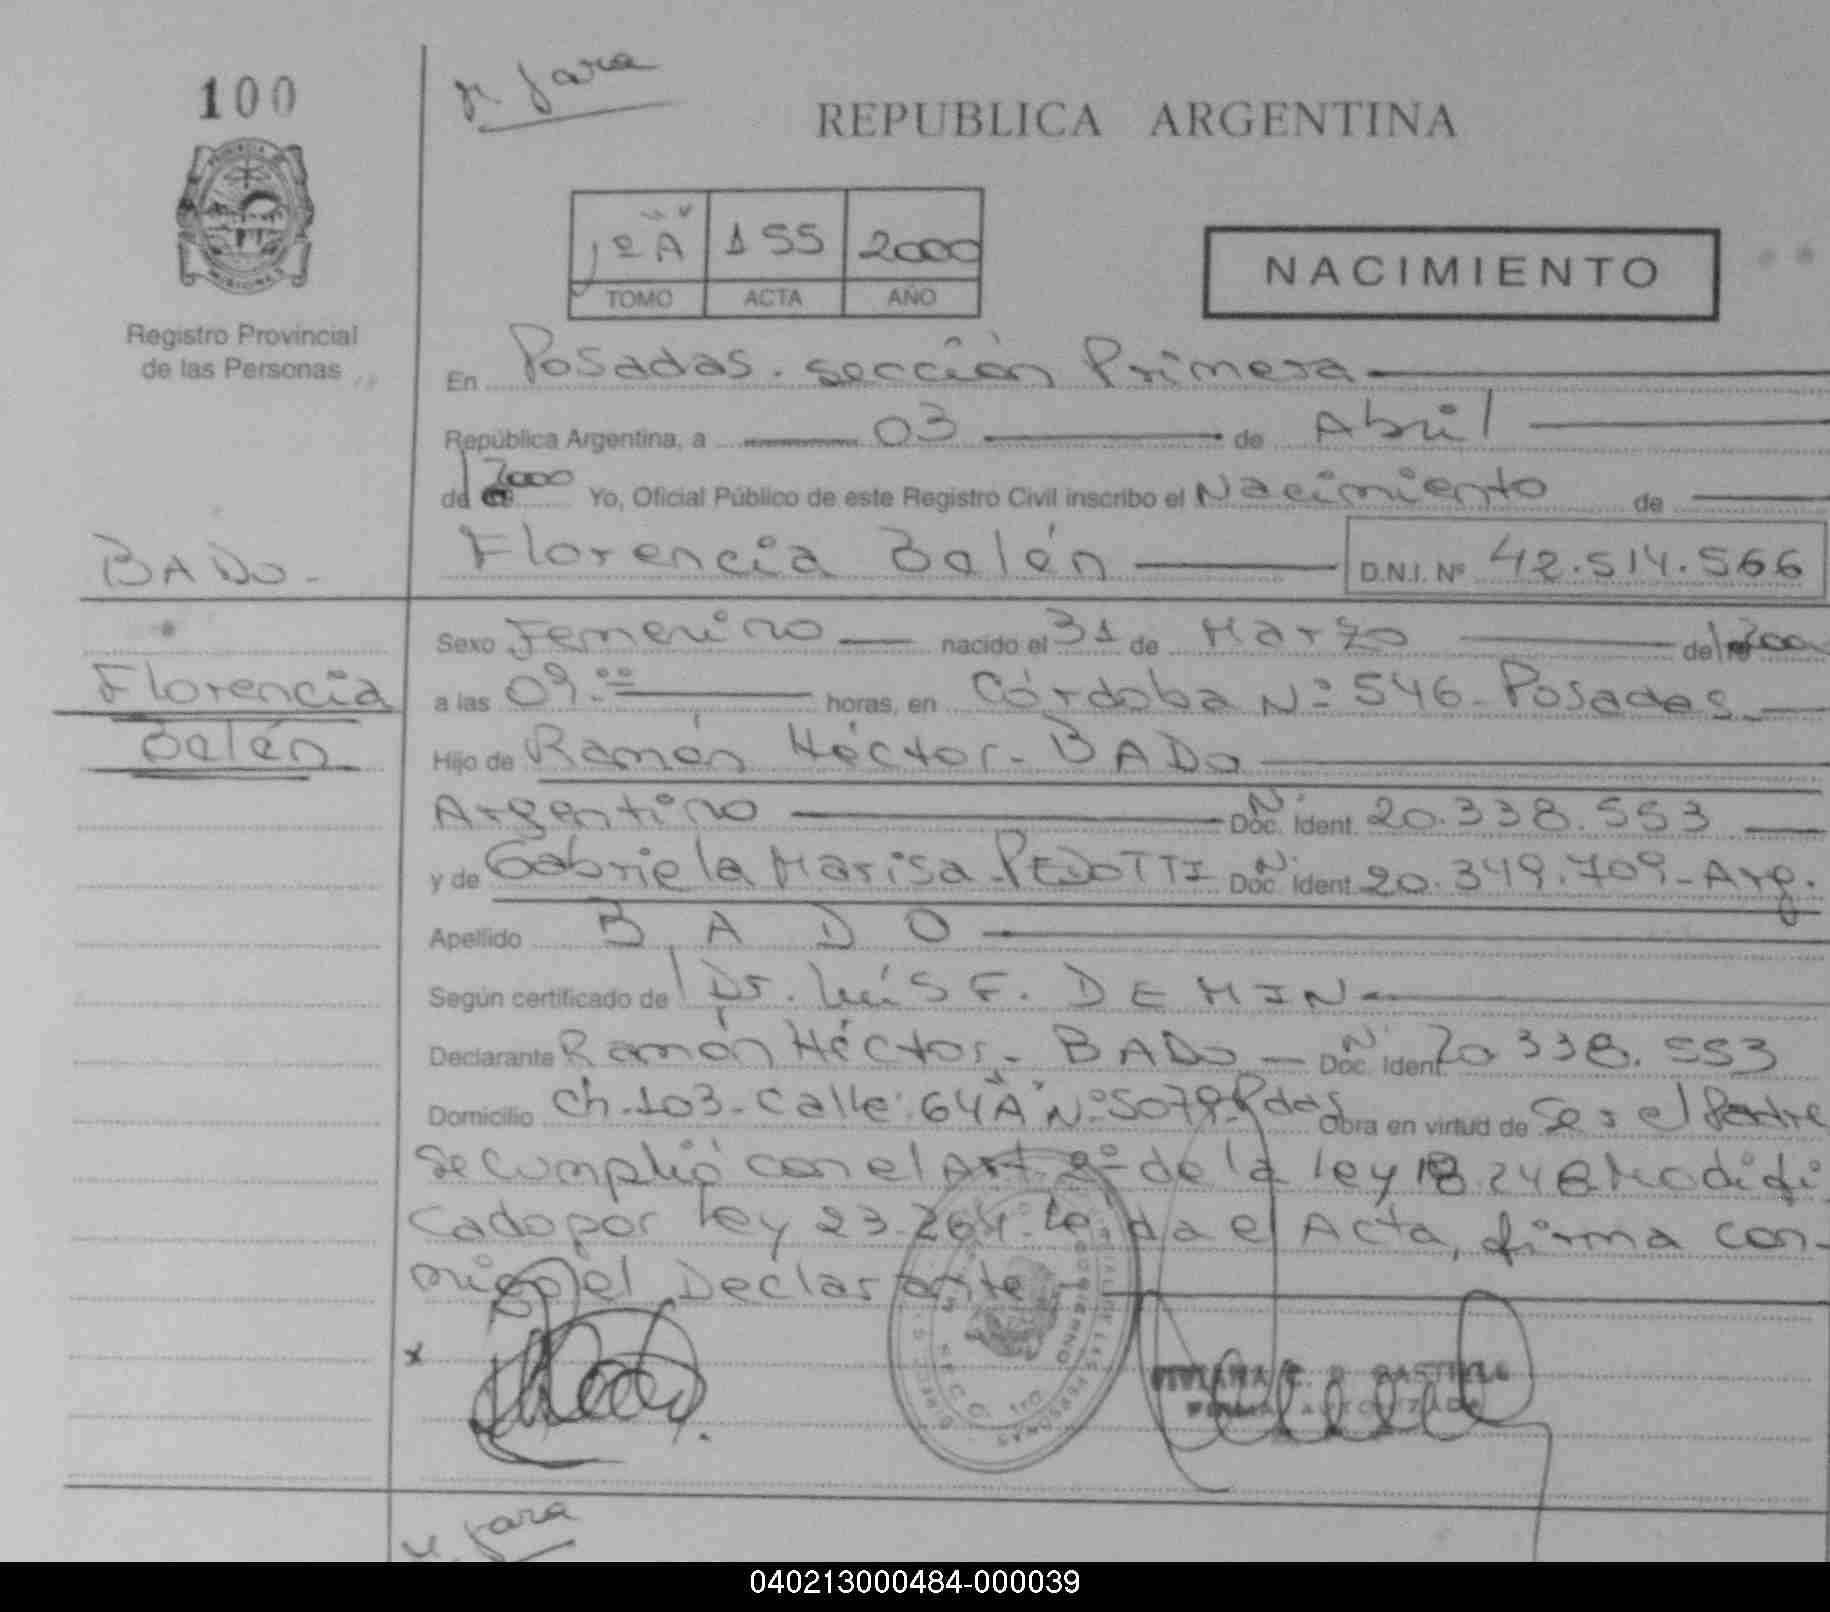 100
REPUBLICA ARGENTINA
1º A 155 2000
TOMO ACTA AÑO
NACIMIENTO
Registro Provincial
de las Personas
En Posadas. sección Primera
República Argentina, a 03 de Abril
de 2000 Yo, Oficial Público de este Registro Civil inscribo el Nacimiento de
BADO.
Florencia Belén D.N.I. Nº 42.514.566
Sexo Femenino nacido el 31 de Marzo de 2000
Florencia
a las 09.00 horas, en Córdoba Nº 546. Posadas.
Belén
Hijo de Ramón Héctor. BADO
Argentino Nº Doc. Ident. 20.338.553
y de Gabriela Marisa PEDOTTI Nº Doc. Ident. 20.349.709. Arg.
Apellido BADO
Según certificado de Dr. Luis F. DEMIN
Declarante Ramón Héctor. BADO Nº Doc. Ident. 20.338.553
Domicilio Ch. 103. Calle 64A Nº 5079. Pdas Obra en virtud de Ser el Padre
Se cumplió con el Art. 2º de la ley 18.248 Modifi
cado por ley 23.264. Leída el Acta, firma con-
migo el Declarante
FIRMA AUTORIZADA
040213000484-000039